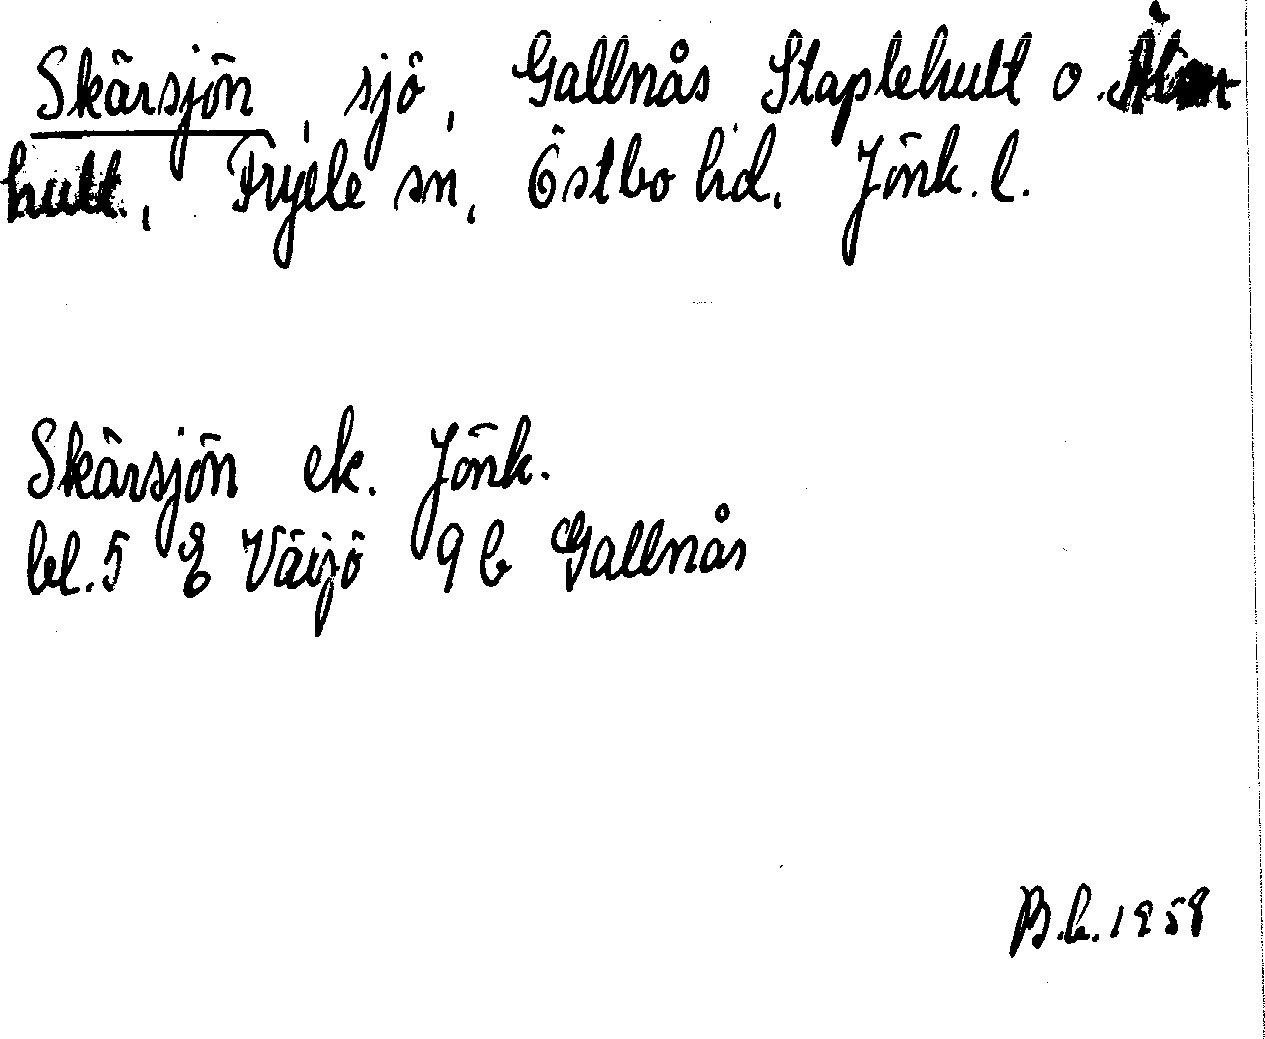 Skärsjön, sjö, Gallnås Staplehult o.
hult., Fryele sn, Östbo hd. Jönk. l.
Skärsjön ek. Jönk.
bl. 5 E Växjö 9 b Gallnås
B.k. 1958